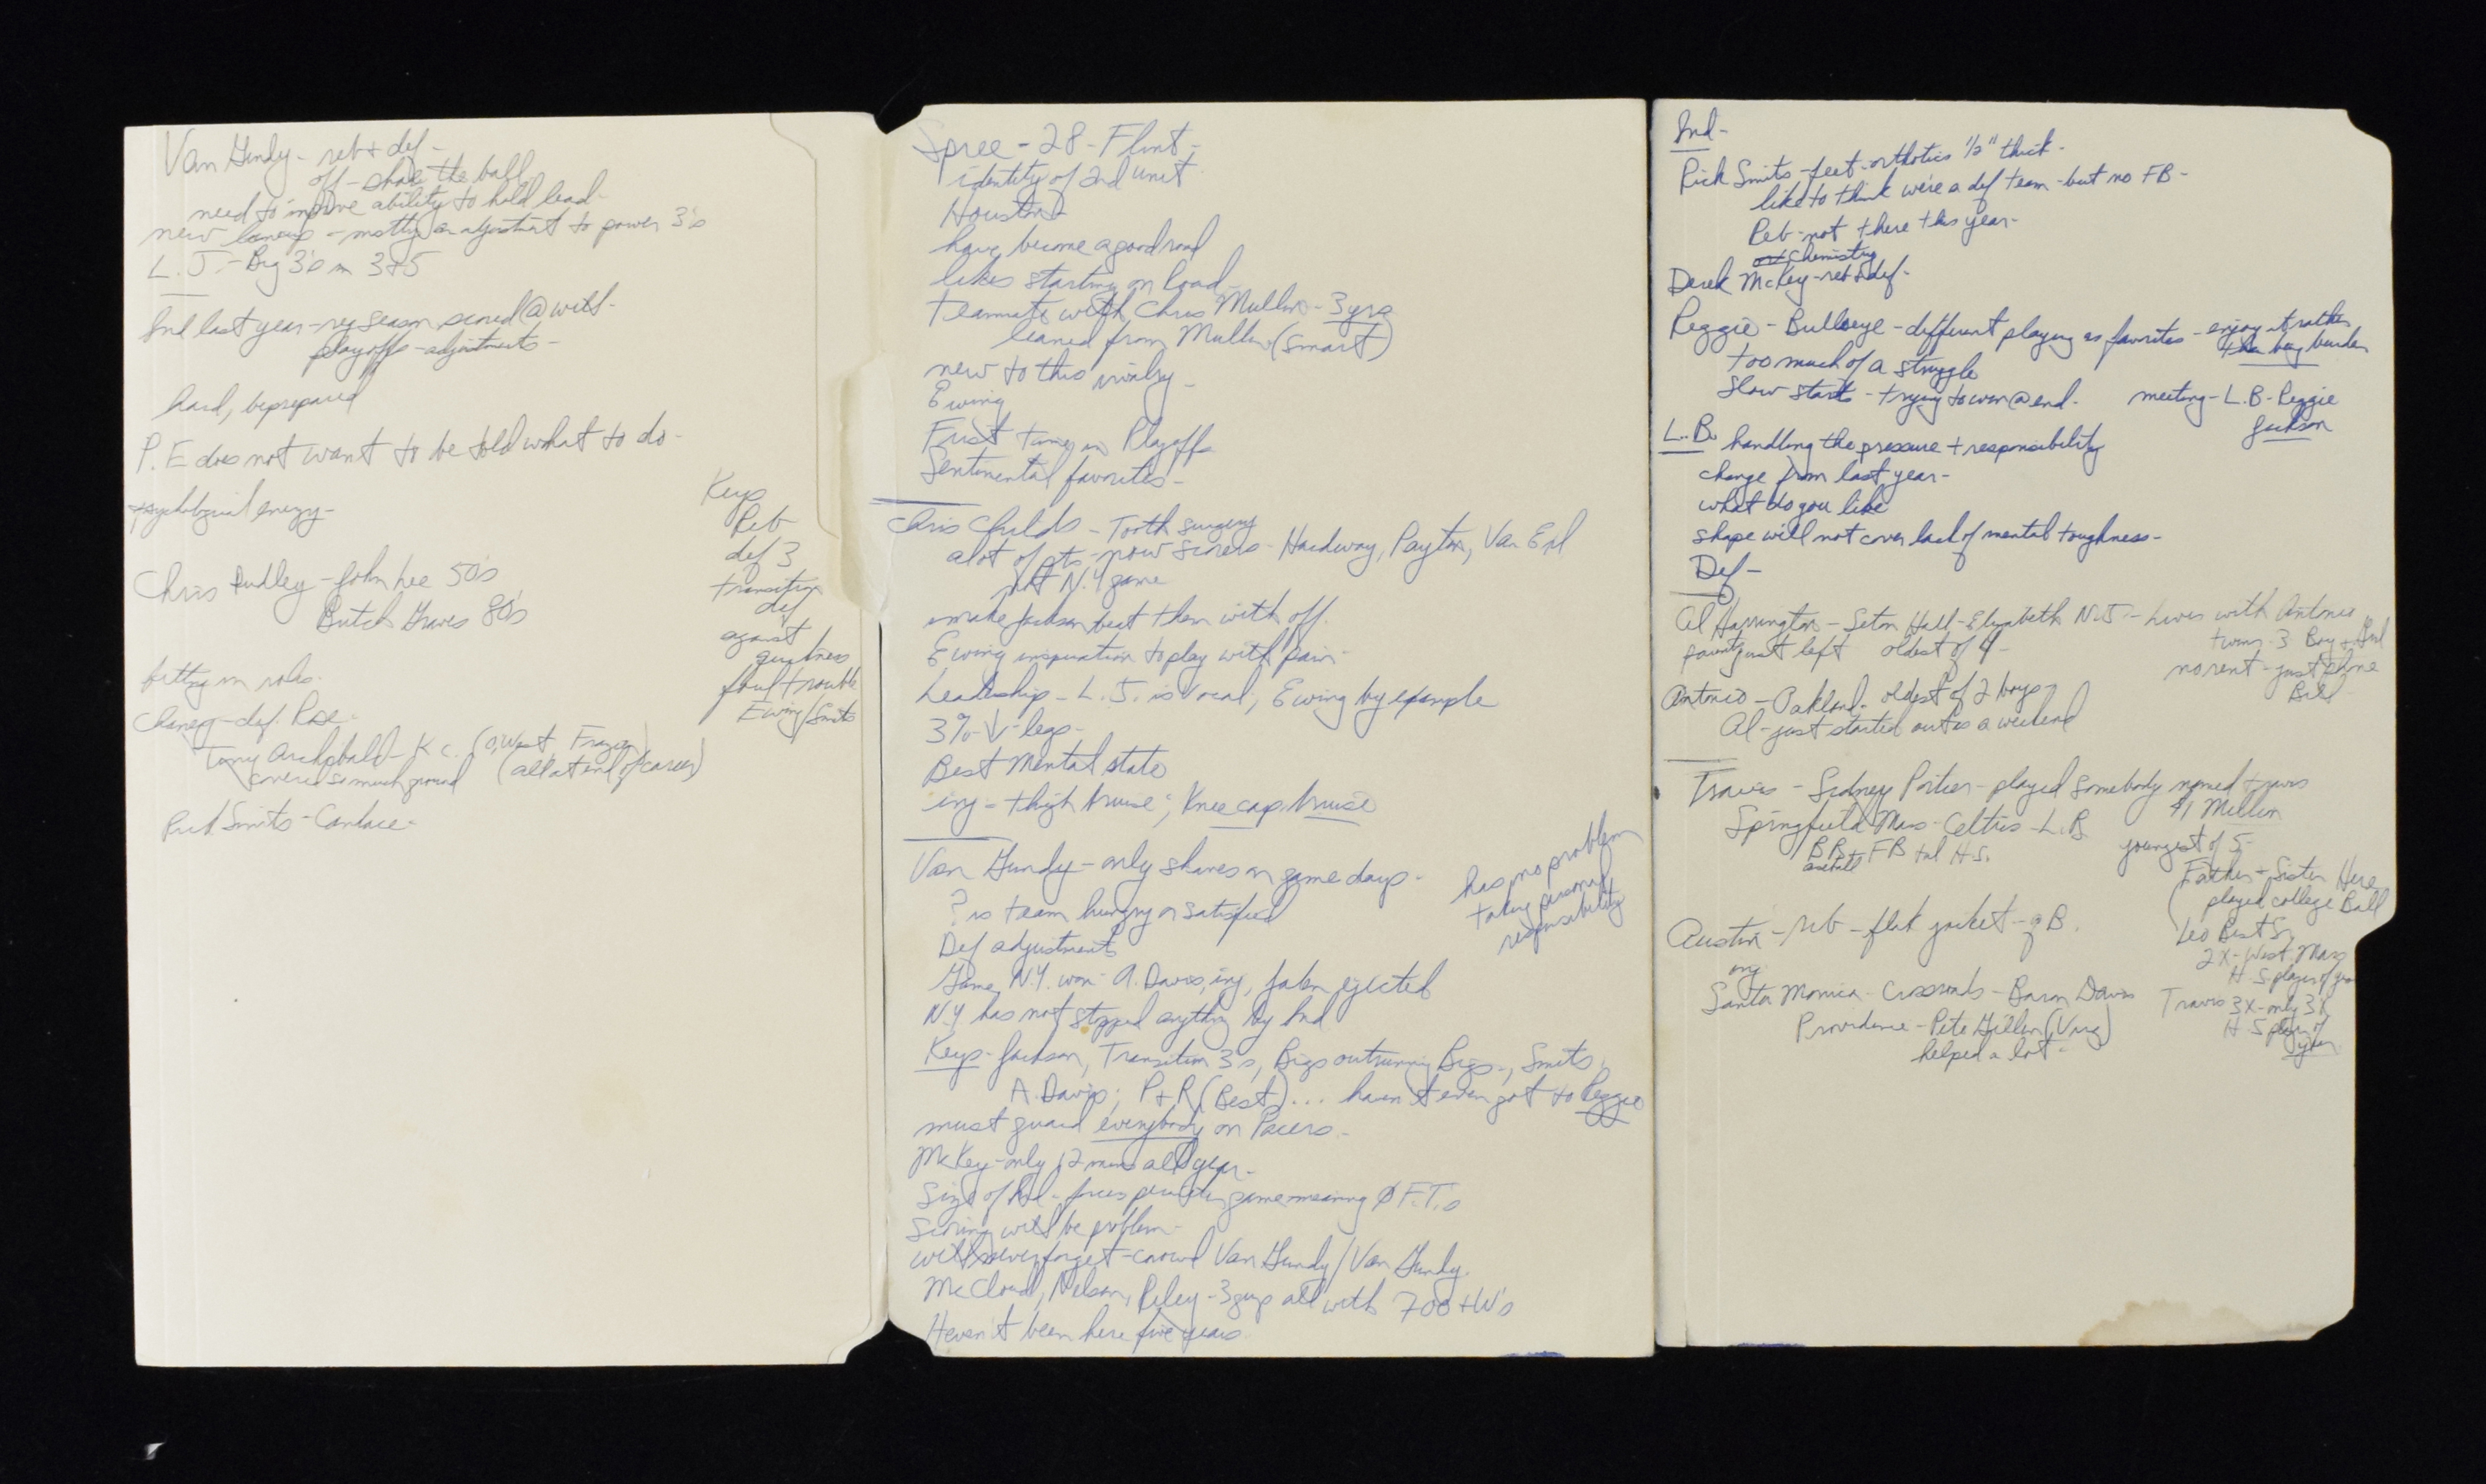 Van Gundy - reb + def -
off - share the ball
need to improve ability to hold lead -
new - an adjustment to power 3's
L. J. - Big 3's in 3 + 5
Ind last year - reg season scored @ will -
playoffs - adjustments -
hard, be prepared
P. E does not want to be told what to do -
psychological energy -
Keys
Reb
def 3
transition
def
against
quickness
foul trouble
Ewing/Smits
Chris Dudley - John Lee 50's
Butch Graves 80's
in roles -
Chaney - def. Rose -
Tiny Archibald - K C. (O, West, Frazier)
covered so much ground (all at end of career)
Rick Smits - Candace -
Spree - 28 - Flint -
identity of 2nd unit
Houston
have become a good road
likes starting on road
teammate with Chris Mullin - 3 yrs
learned from Mullin (smart)
new to this rivalry -
Ewing
First time in Playoffs
Sentimental favorites -
Chris Childs - Tooth surgery
alot of pts - now scorers - Hardway, Payton, Van Exl
not N.Y game
make Jackson beat them with off.
Ewing inspiration to play with pain -
Leadership - L. J. is vocal, Ewing by example
3% ↓ - legs -
Best Mental state
inj - thigh bruise; Knee cap bruise
Van Gundy - only shaves on game days -
? is team hungry or satisfied
has no problem
taking personal
responsibility
Def adjustments
Game N.Y. won - A. Davis, inj, Jalen ejected
N.Y has not stopped anything by Ind
Keys - Jackson, Transition 3's, Bigs outrunning Bigs -, Smits,
A. Davis; P + R (Best) ... haven't even got to Reggie
must guard everybody on Pacers -
McKey - only 12 mins all year -
Size of Ind - forces perimeter game meaning Ø F.T.'s
Scoring will be problem -
will never forget - crowd Van Gundy / Van Gundy.
McCloud, Nelson, Riley - 3 guys all with 700 + W's
Haven't been here five years
Ind -
Rick Smits - feet - orthotics 1/2" thick -
like to think we're a def team - but no FB -
Reb - not there this year -
chemistry
Derek McKey - reb + def -
Reggie - Bullseye - different playing as favorites - enjoy it rather
than being burden
too much of a struggle
slow starts - trying to win @ end - meeting - L. B - Reggie
Jackson
L. B. handling the pressure + responsibility
change from last year -
what do you like
shape will not cover lack of mental toughness -
Def -
Al Harrington - Seton Hall - Elizabeth N.J - Lives with Antonio
twins - 3 Boy + Girl
parents just left oldest of 4 -
no rent - just phone
Bill
Antonio - Oakland - oldest of 2 boys -
Al - just started out as a weekend
Travis - Sidney Poitier - played somebody named travis
$1 Million
Springfield Mass - Celtics - L. B.
BB + FB tul H S. youngest of 5 -
Father + Sister Here
(played college Ball
Austin - reb - flak jacket - q B.
Leo Best Sr
2X - West. Mass
H. S player of year
Santa Monica - Crossroads - Baron Davis
Travis 3X - only 3X
H. S player of
year
Providence - Pete Gillen (Virg)
helped a lot -